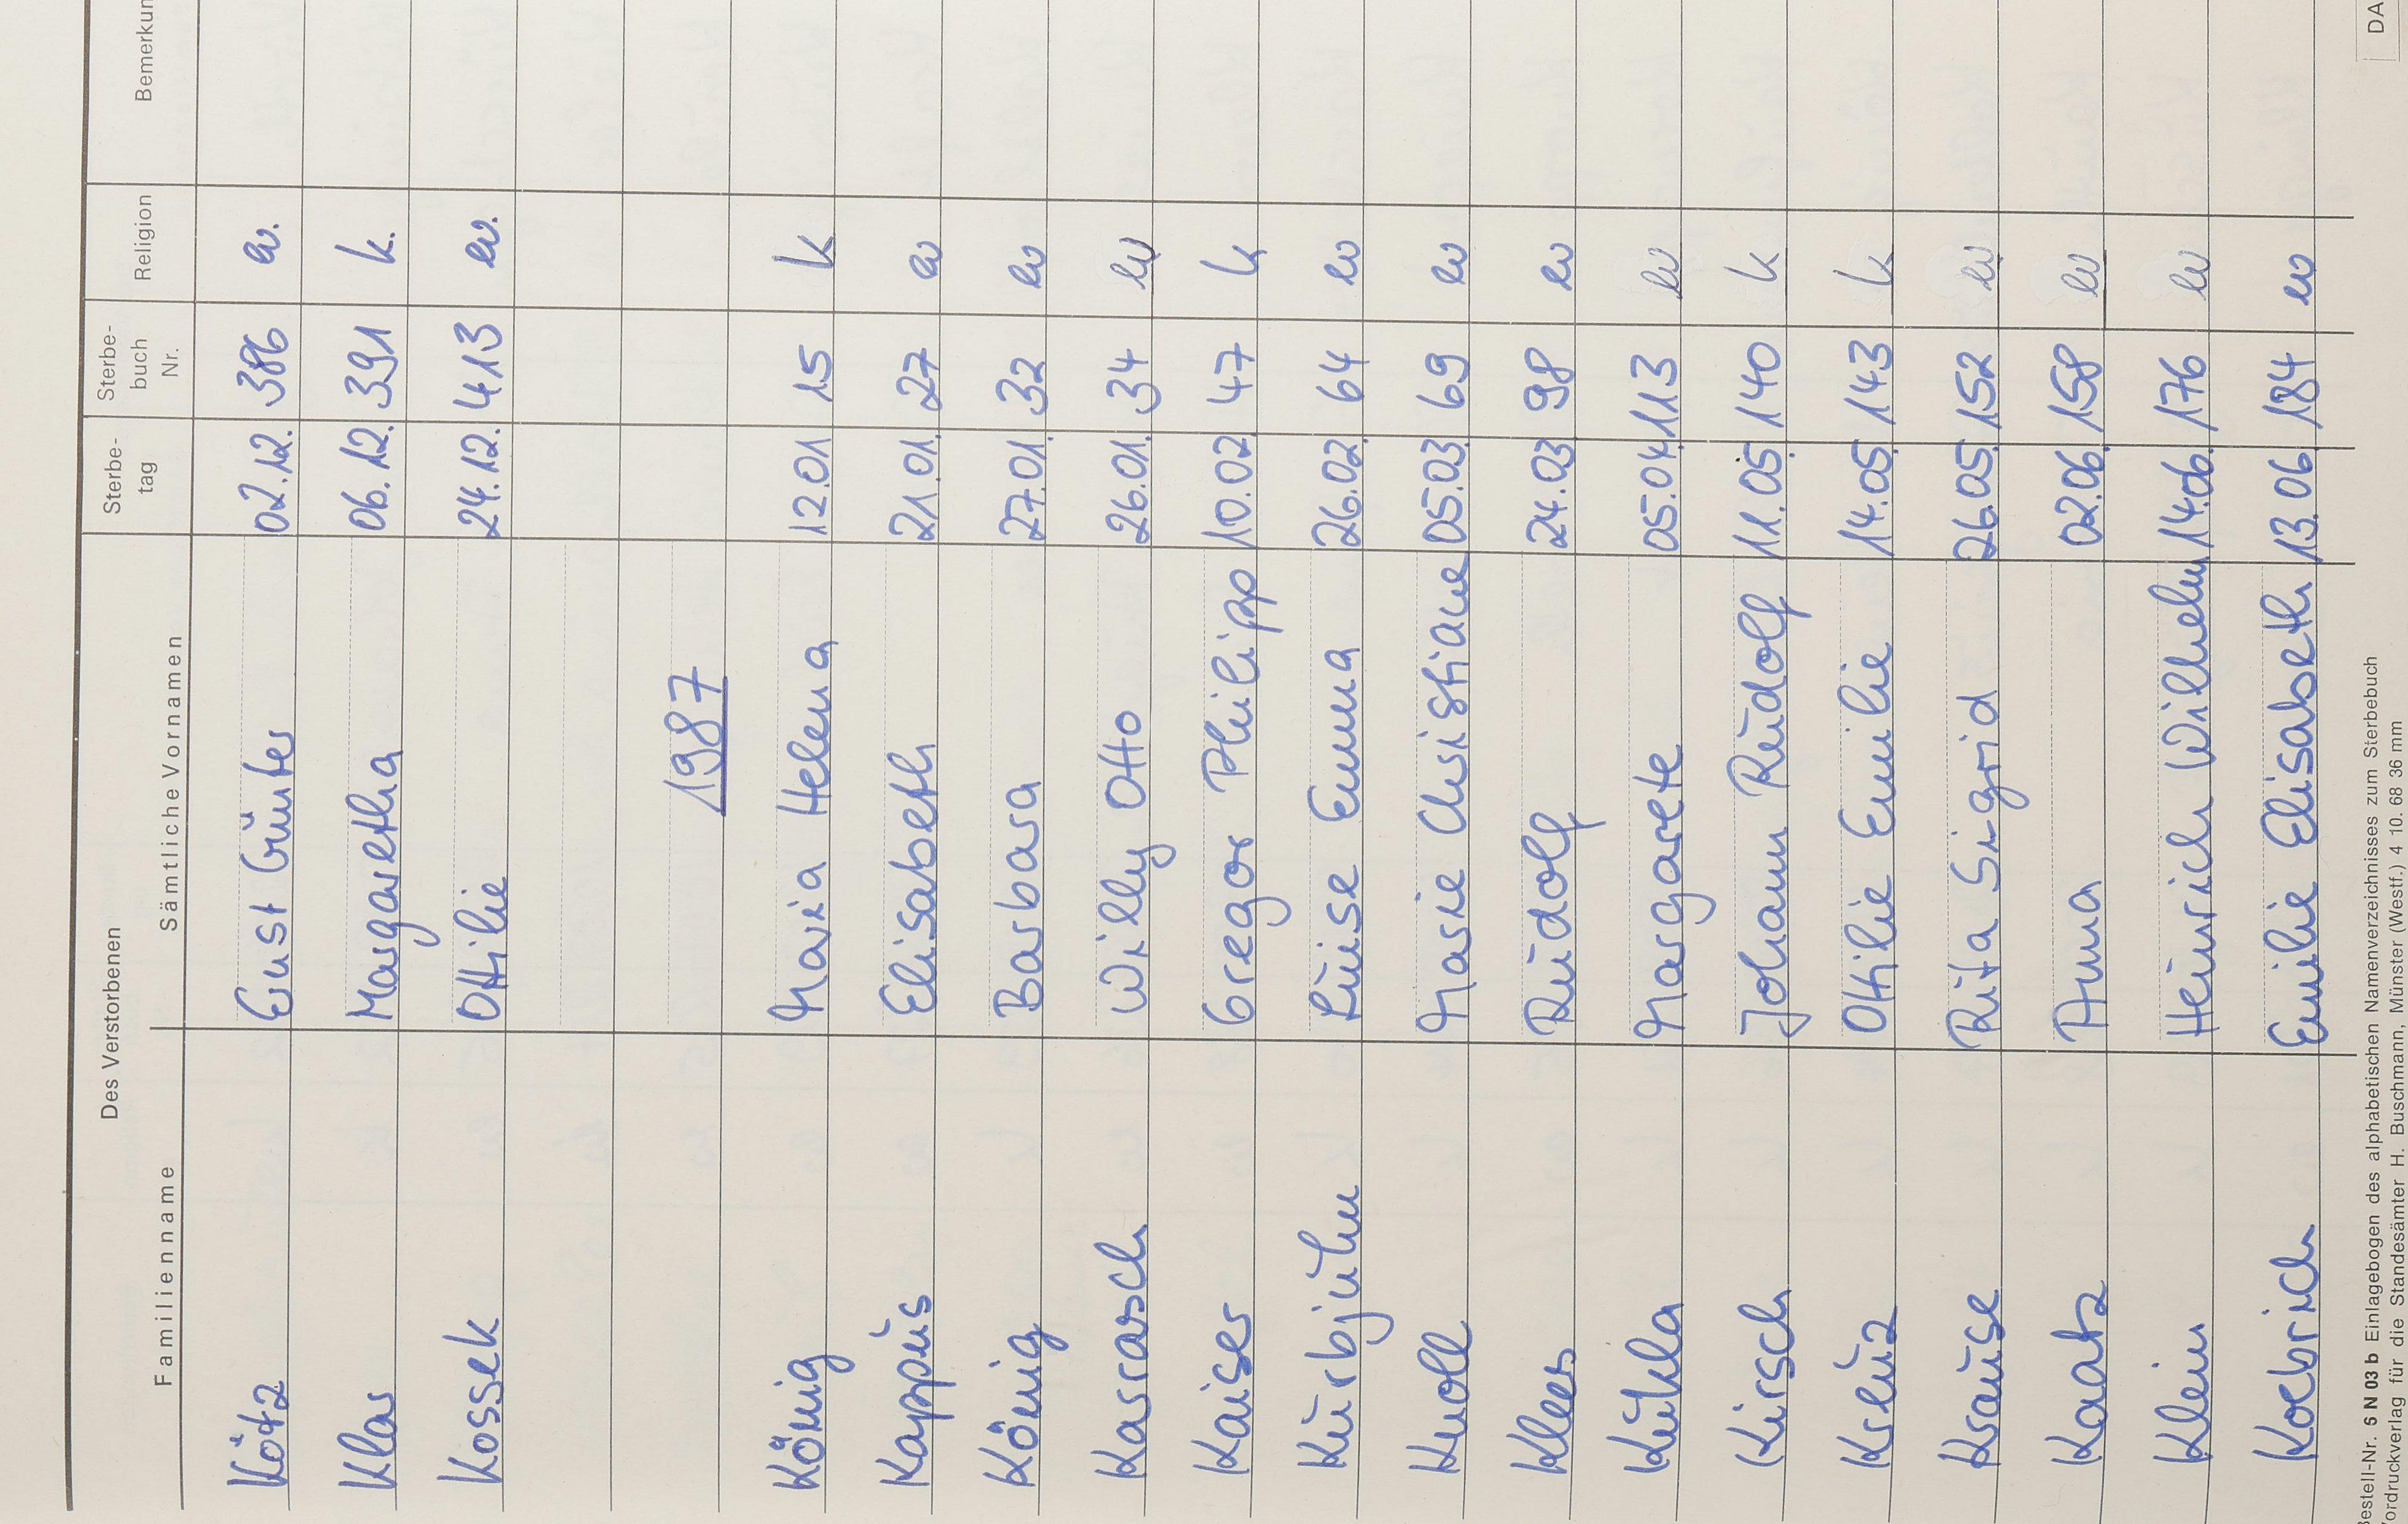 Des Verstorbenen
Familienname Sämtliche Vornamen Sterbe-tag Sterbe-buch Nr. Religion Bemerkun
Kötz Ernst Günter 02.12. 386 ev.
Klar Margaretha 06.12. 391 k.
Kossek Ottilie 24.12. 413 ev.
1987
König Maria Helena 12.01 15 k
Kappus Elisabeth 21.01. 27 ev
König Barbara 27.01. 32 ev
Karrasch Willy Otto 26.01. 34 ev
Kaiser Gregor Philipp 10.02. 47 k
Kurbjuhn Luise Emma 26.02. 64 ev
Knoll Marie Christiane 05.03. 69 ev
Klees Rudolf 24.03 98 ev
Margarete 05.04. 113 ev
Kirsch Johann Rudolf 11.05. 140 k
Kreuz Ottilie Emilie 14.05. 143 k
Krause Rita Sigrid 26.05. 152 ev
Kaatz Anna 02.06. 158 ev
Klein Heinrich Wilhelm 14.06. 176 ev
Koebrich Emilie Elisabeth 13.06. 184 ev
Bestell-Nr. 6 N 03 b Einlagebogen des alphabetischen Namenverzeichnisses zum Sterbebuch
Vordruckverlag für die Standesämter H. Buschmann, Münster (Westf.) 4 10. 68 36 mm
DA